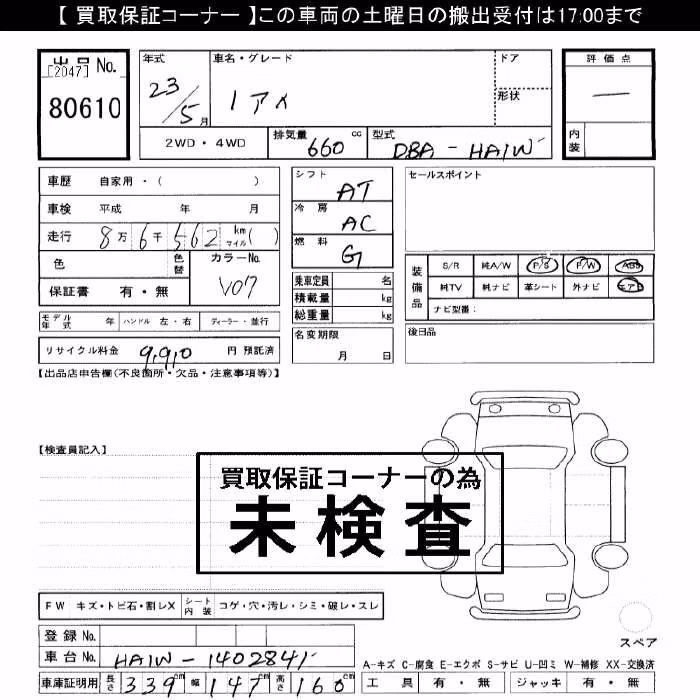 【 買取保証コーナー 】この車両の土曜日の搬出受付は17:00まで
出品 No. 年式 車名・グレード ドア 評価点
[2047]
80610 23/5月 iアメ 形状 —
2WD・4WD 排気量 660 cc 型式 DBA-HA1W 内装
車歴 自家用・( ) シフト AT セールスポイント
車検 平成 年 月 冷房 AC
走行 8万6千562 km マイル ( ) 燃料 G
色 色替 カラーNo. V07 装備品 S/R 純A/W P/S P/W ABS
保証書 有・無 乗車定員 名 純TV 純ナビ 革シート 外ナビ エアB
積載量 kg ナビ型番:
モデル年式 年 ハンドル 左・右 ディーラー・並行 総重量 kg
リサイクル料金 9,910 円 預託済 名変期限 月 日 後日品
【出品店申告欄(不良箇所・欠品・注意事項等)】
【検査員記入】
買取保証コーナーの為
未検査
FW キズ・トビ石・割レX シート内装 コゲ・穴・汚レ・シミ・破レ・スレ
登録 No. スペア
車台 No. HA1W-1402841 A-キズ C-腐食 E-エクボ S-サビ U-凹ミ W-補修 XX-交換済
車庫証明用 長さ 339cm 幅 147cm 高さ 160cm 工具 有・無 ジャッキ 有・無